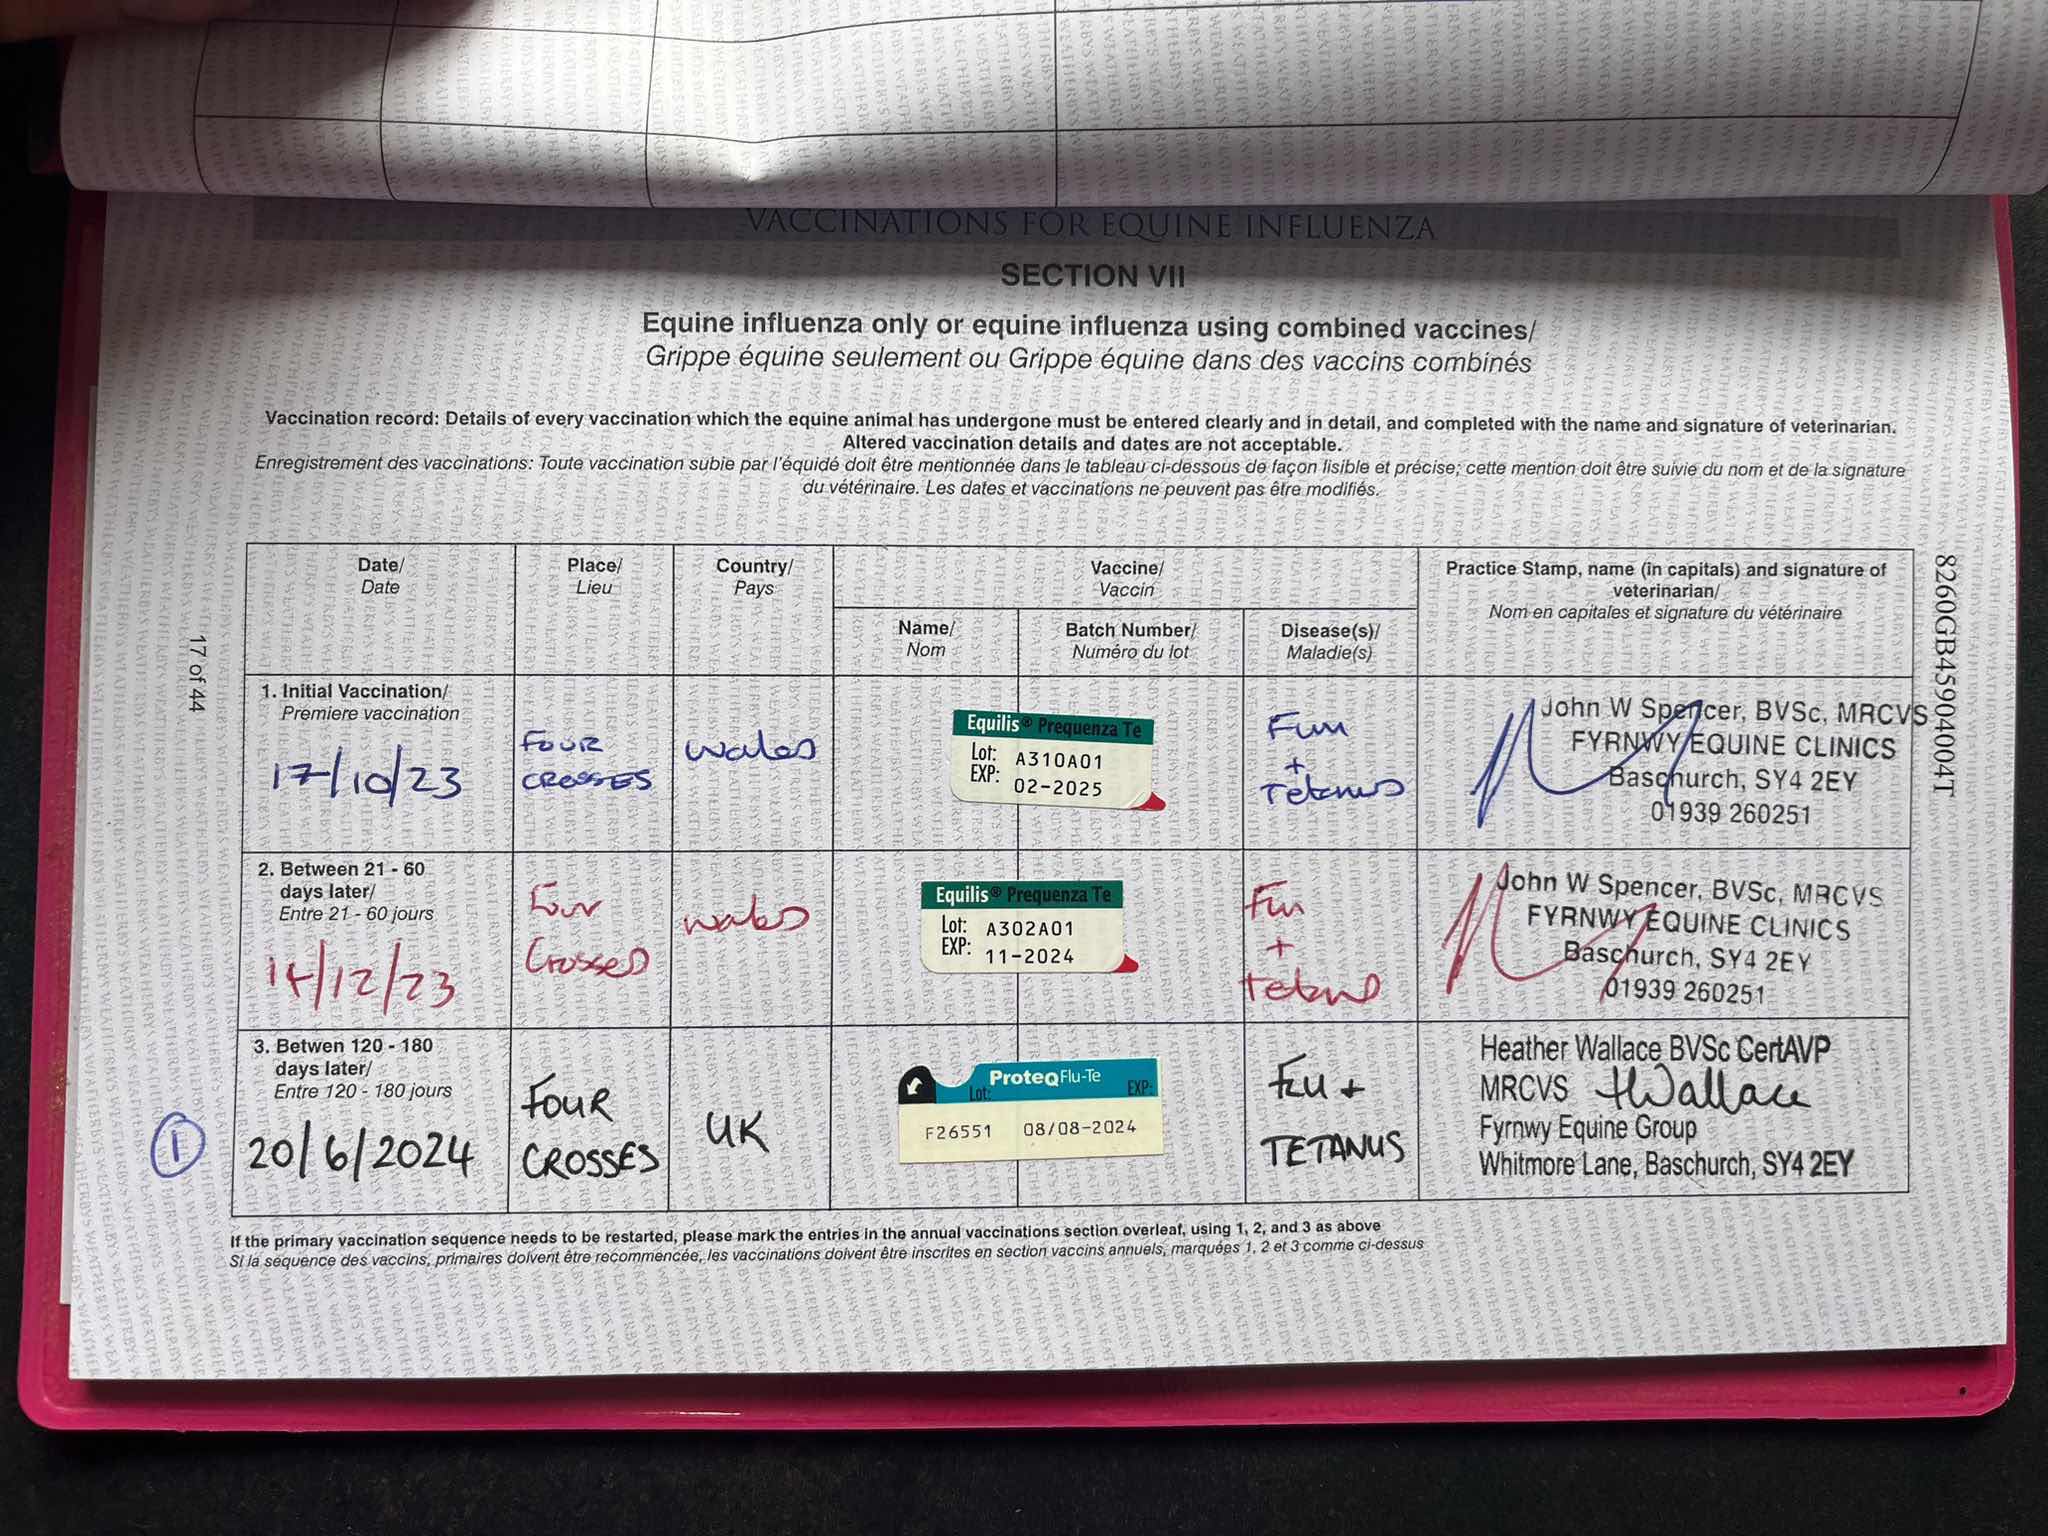 VACCINATIONS FOR EQUINE INFLUENZA
SECTION VII
Equine influenza only or equine influenza using combined vaccines/
Grippe équine seulement ou Grippe équine dans des vaccins combinés
Vaccination record: Details of every vaccination which the equine animal has undergone must be entered clearly and in detail, and completed with the name and signature of veterinarian.
Altered vaccination details and dates are not acceptable.
Enregistrement des vaccinations: Toute vaccination subie par l'équidé doit être mentionnée dans le tableau ci-dessous de façon lisible et précise; cette mention doit être suivie du nom et de la signature
du vétérinaire. Les dates et vaccinations ne peuvent pas être modifiés.
Date/
Date
Place/
Lieu
Country/
Pays
Vaccine/
Vaccin
Name/
Nom
Batch Number/
Numéro du lot
Disease(s)/
Maladie(s)
Practice Stamp, name (in capitals) and signature of
veterinarian/
Nom en capitales et signature du vétérinaire
1. Initial Vaccination/
Premiere vaccination
17/10/23
FOUR
CROSSES
Wales
Equilis® Prequenza Te
Lot: A310A01
EXP: 02-2025
+
Tetanus
John W Spencer, BVSc, MRCVS
FYRNWY EQUINE CLINICS
Baschurch, SY4 2EY
01939 260251
2. Between 21 - 60
days later/
Entre 21 - 60 jours
14/12/23
Four
Crosses
Wales
Equilis® Prequenza Te
Lot: A302A01
EXP: 11-2024
+
John W Spencer, BVSc, MRCVS
FYRNWY EQUINE CLINICS
Baschurch, SY4 2EY
01939 260251
3. Betwen 120 - 180
days later/
Entre 120 - 180 jours
1
20/6/2024
FOUR
CROSSES
UK
ProteqFlu-Te
Lot: EXP:
F26551 08/08-2024
FLU +
TETANUS
Heather Wallace BVSc CertAVP
MRCVS HWallace
Fyrnwy Equine Group
Whitmore Lane, Baschurch, SY4 2EY
If the primary vaccination sequence needs to be restarted, please mark the entries in the annual vaccinations section overleaf, using 1, 2, and 3 as above
Si la séquence des vaccins, primaires doivent être recommencée, les vaccinations doivent être inscrites en section vaccins annuels, marquées 1, 2 et 3 comme ci-dessus
17 of 44
8260GB459040004T